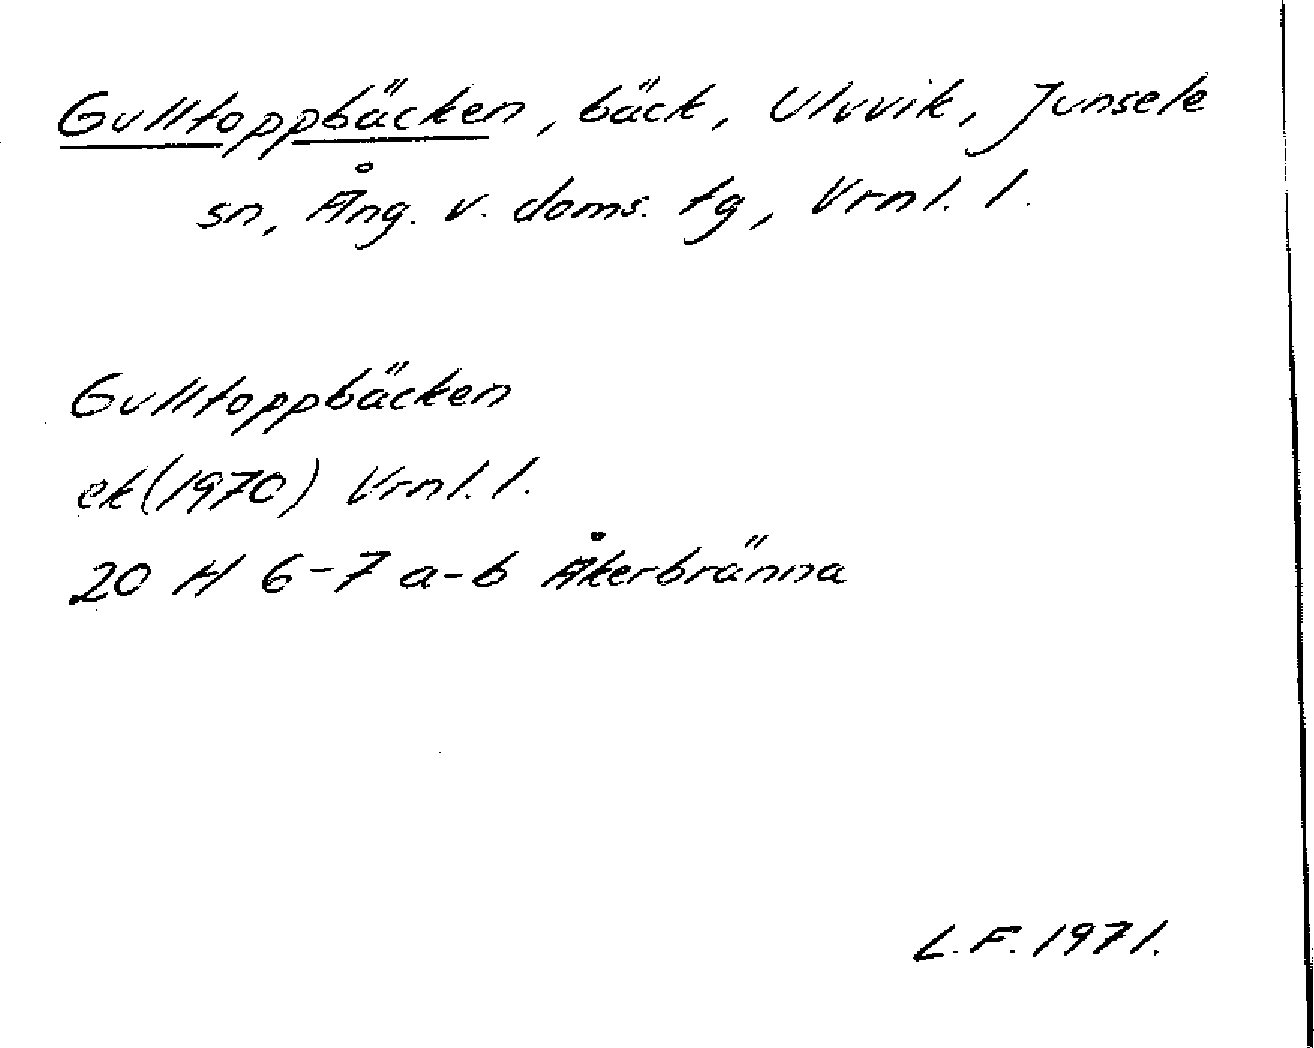 Gulltoppbäcken, bäck, Uluvik, Junsele
sn, Ång. v. doms. tg, Vrnl. l.
Gulltoppbäcken
ek (1970) Vrnl. l.
20 H 6-7 a-b Åkerbränna
L.F. 1971.